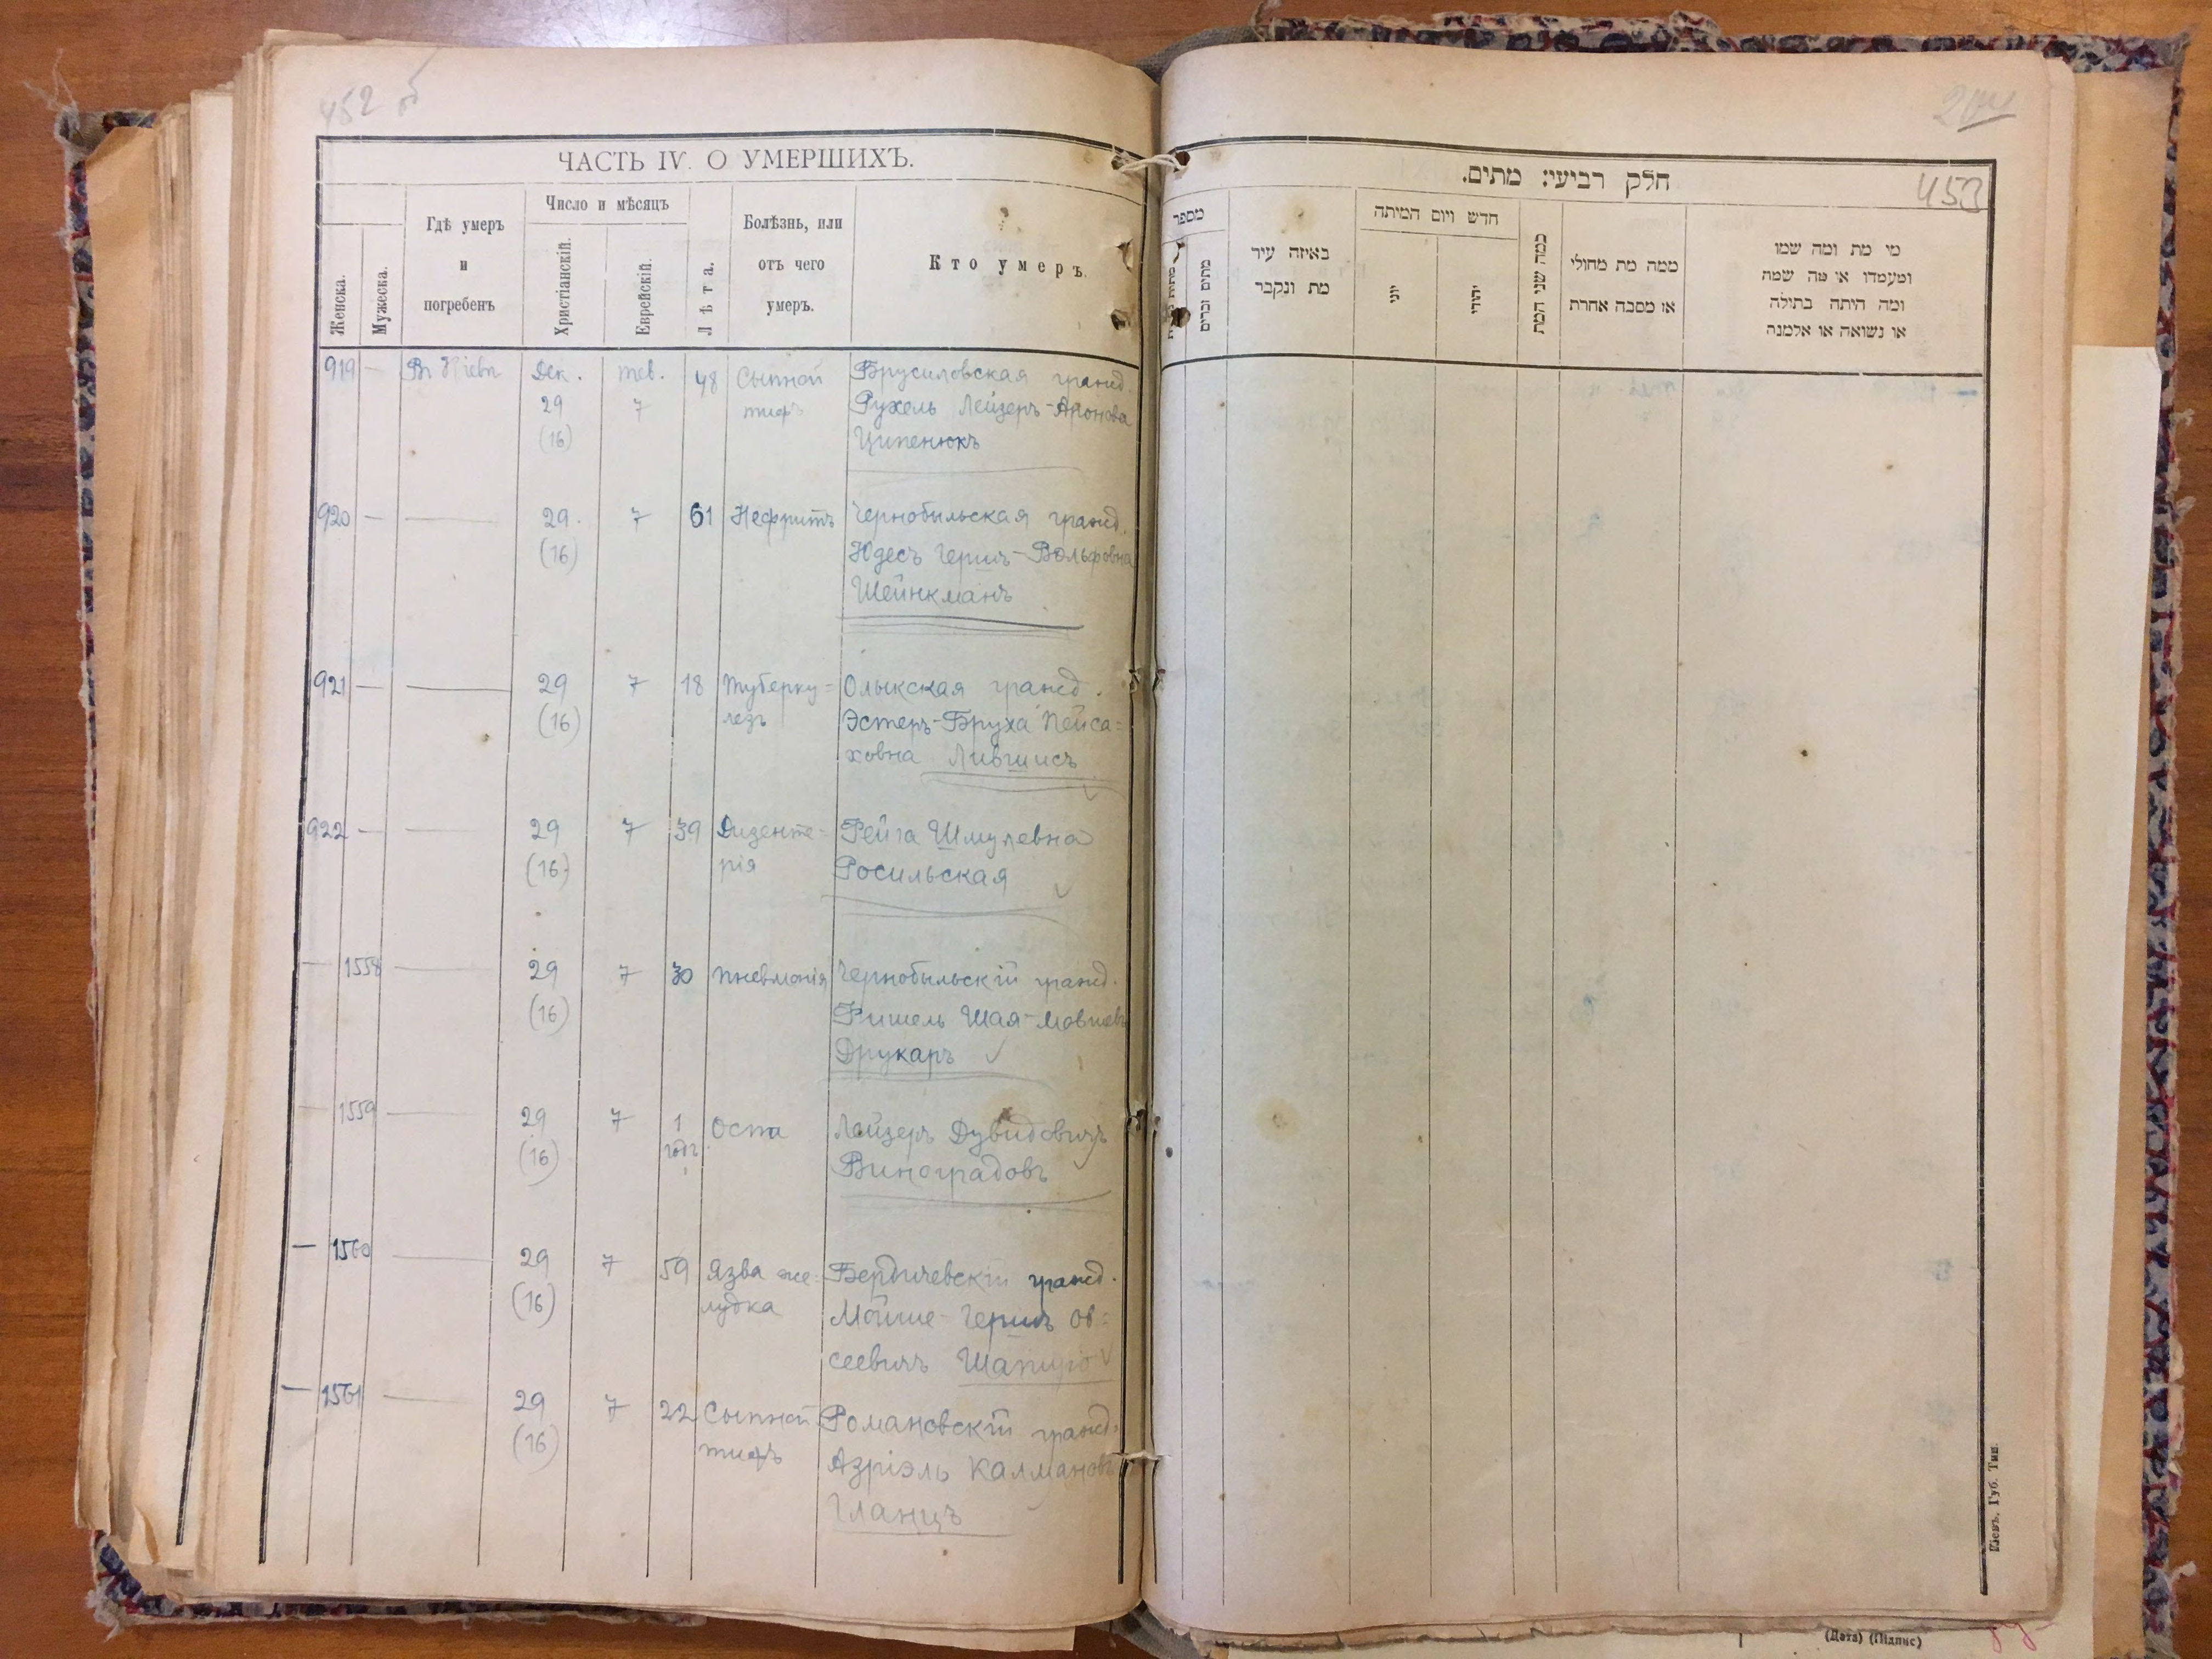 452 об
ЧАСТЬ IV. О УМЕРШИХЪ.
Женска.
Мужеска.
Гдѣ умеръ
и
погребенъ
Число и мѣсяцъ
Христіанскій.
Еврейскій.
Лѣта.
Болѣзнь, или
отъ чего
умеръ.
Кто умеръ.
919 — Въ Кіевѣ Дек. тев. 48 Сыпной Брусиловская гражд.
29 7 тифъ Рухель Лейзеръ-Аронова
(16) Ципенюкъ
920 — — 29 7 61 Нефритъ Чернобыльская гражд.
(16) Юдесъ Гершъ-Вольфовна
Шейнкманъ
921 — — 29 7 18 Туберку= Олыкская гражд.
(16) лезъ Эстеръ-Бруха Пейса=
ховна Лившисъ
922 — — 29 7 39 Дизенте= Фейга Шмулевна
(16) рія Росильская
— 1558 — 29 7 30 Пневмонія Чернобыльскій гражд.
(16) Фишель Шая-Мовшевъ
Друкаръ
— 1559 — 29 7 1 Оспа Лейзеръ Дувидовичъ
(16) годъ Виноградовъ
— 1560 — 29 7 59 Язва же= Бердичевскій гражд.
(16) лудка Мойше-Гершъ Ов=
сеевичъ Шапиро
— 1561 — 29 7 22 Сыпной Романовскій гражд.
(16) тифъ Азріэль Калмановъ
Гланцъ
204
453
חלק רביעי: מתים.
מספר
מתים זכרים
באיזה עיר
מת ונקבר
חדש ויום המיתה
יוני
יהודי
כמה שני המת
ממה מת מחולי
או מסבה אחרת
מי מת ומה שמו
ומעמדו או מה שמה
ומה היתה בתולה
או נשואה או אלמנה
Кіевъ. Губ. Тип.
(Дата) (Підпис)